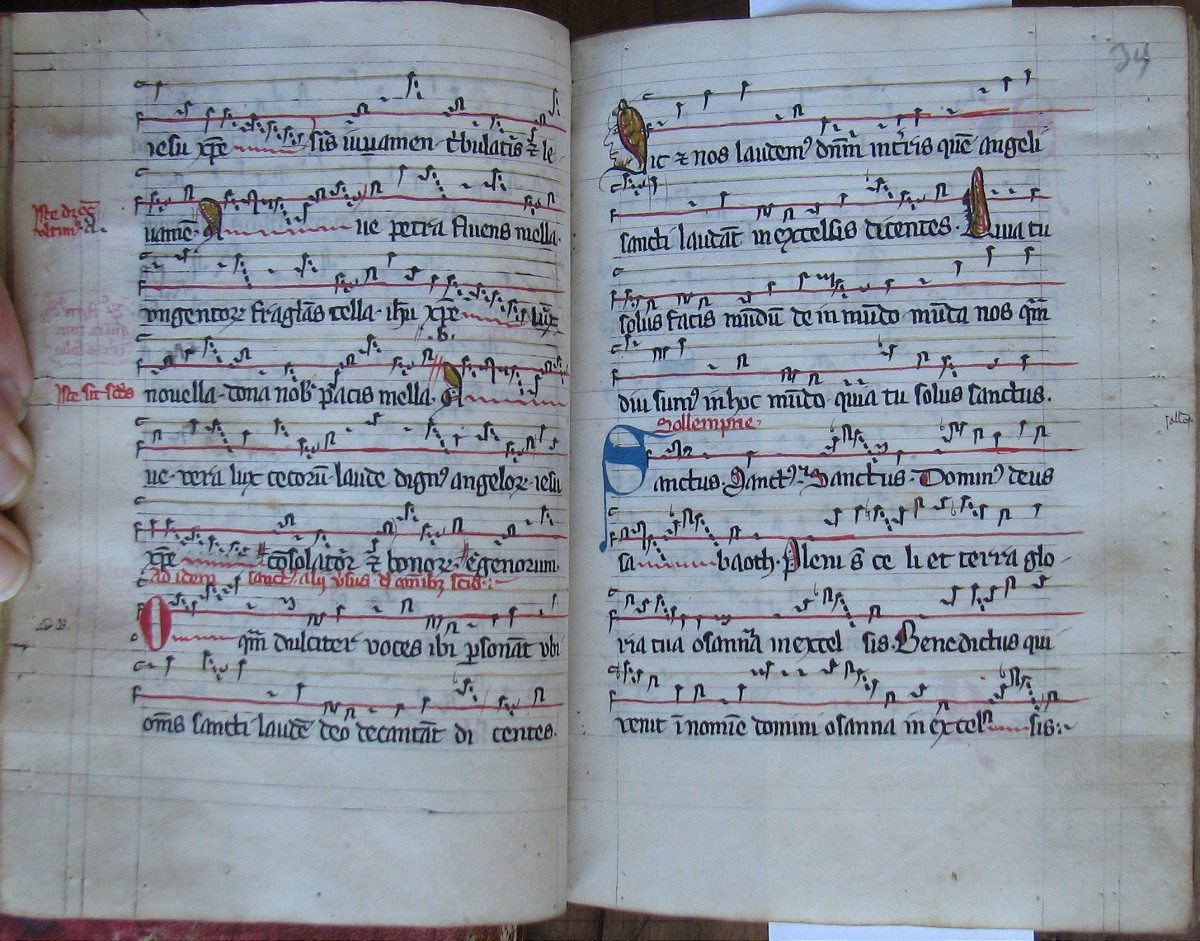 iesu xp̄e sis iuuamen tribulatis ⁊ le
uamē. Aue petra fluens mella.
vngentorꝝ fragrās cella. ihū xp̄e lux
nouella. dona nob᾽ pacis mella. A
ue. vera lux cecorū. laude dign᾽ angeloꝝ. iesu
xp̄e consolatōr ⁊ bonoꝝ. egenorum.
ad idem
O qm̄ dulciter voces ibi ꝑsonāt vbi
om̄s sancti laudē deo decantāt di centes.
34
Sic ⁊ nos laudem᾽ dn̄m in terris quē angeli
sancti laudāt in excelsis dicentes. Quia tu
solus facis mūdū de in mūdo mūda nos qm̄
diu sum᾽ in hoc mūdo. quia tu solus sanctus.
Sollempne.
Sanctus. Sanct᾽. Sanctus. Domin᾽ deus
sa baoth. Pleni s̄ ce li et terra glo
ria tua osanna in excel sis. Benedictus qui
venit ī nomīe domini osanna in excel sis.